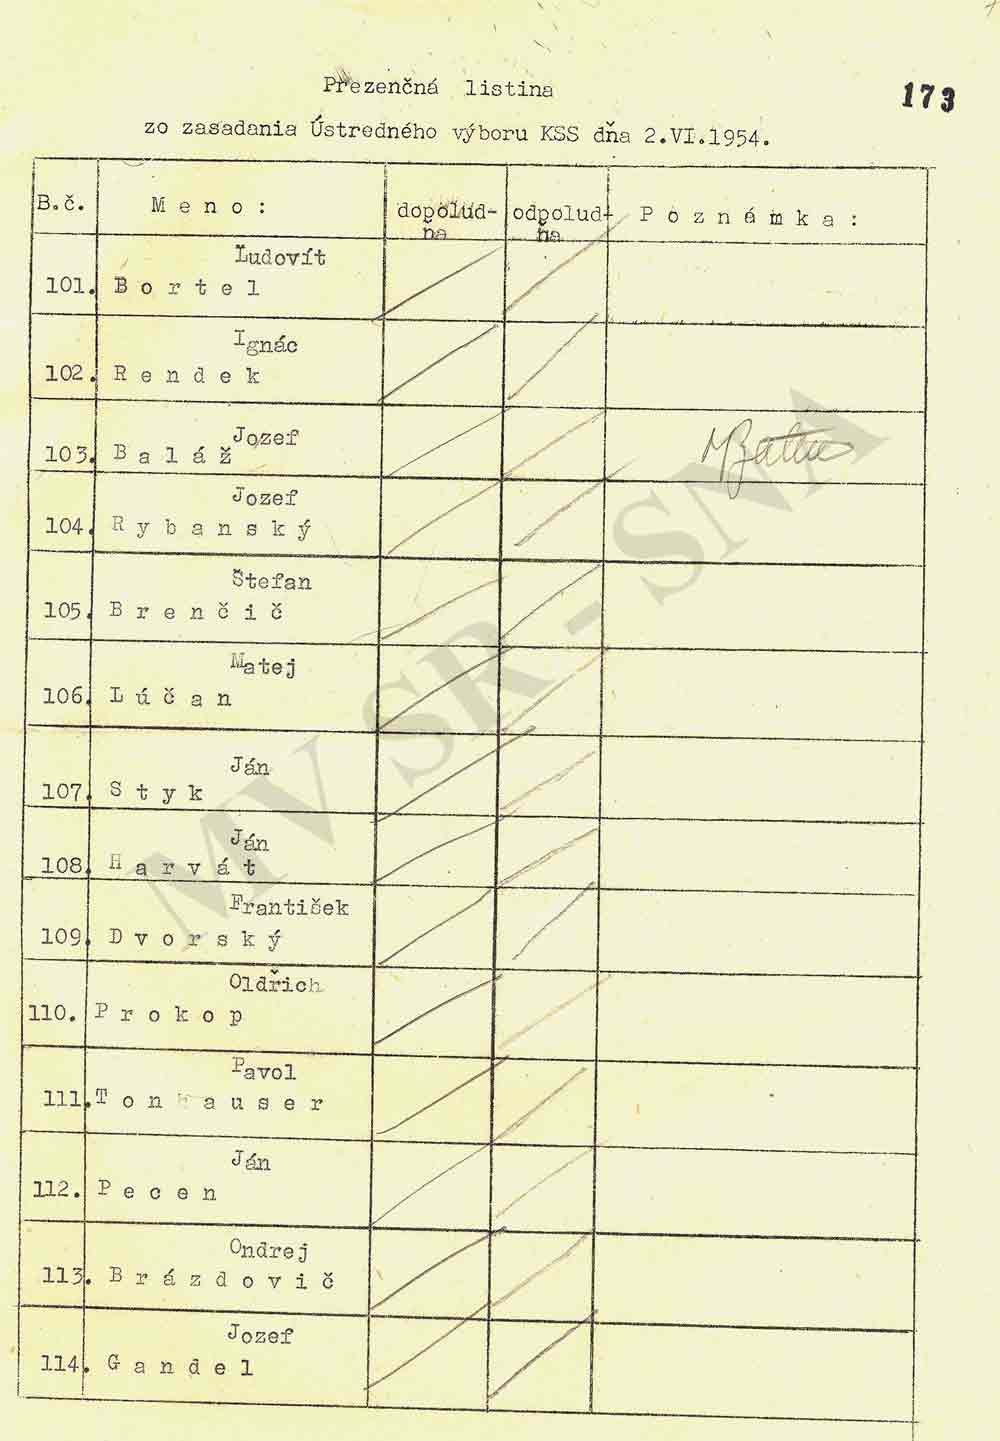 Prezenčná listina
173
zo zasadania Ústredného výboru KSS dňa 2.VI.1954.
B.č. Meno: dopolud- odpolud- Poznámka:
ňa ňa
Ľudovít
101. Bortel
Ignác
102. Rendek
Jozef
103. Baláž
Jozef
104. Rybanský
Štefan
105. Brenčič
Matej
106. Lúčan
Ján
107. Styk
Ján
108. Harvát
František
109. Dvorský
Oldřich
110. Prokop
Pavol
111. Tonhauser
Ján
112. Pecen
Ondrej
113. Brázdovič
Jozef
114. Gandel
MV SR - SNA